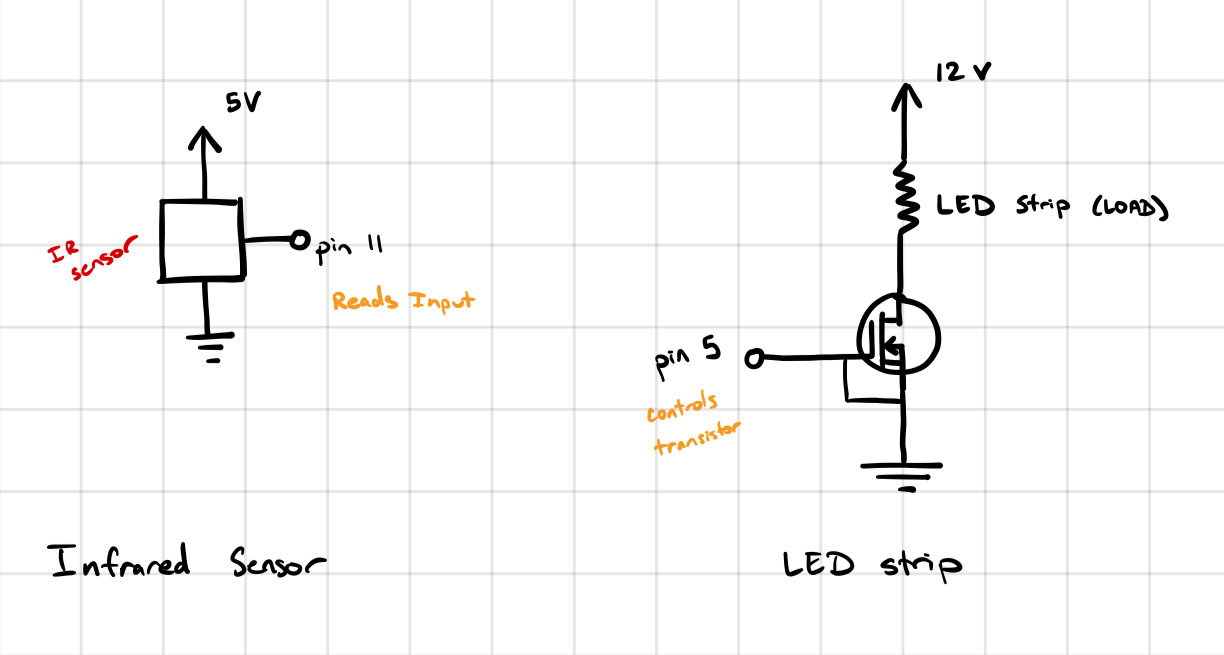 5V
IR
sensor
pin 11
Reads Input
Infrared Sensor
12 V
LED strip (LOAD)
pin 5
controls
transistor
LED strip